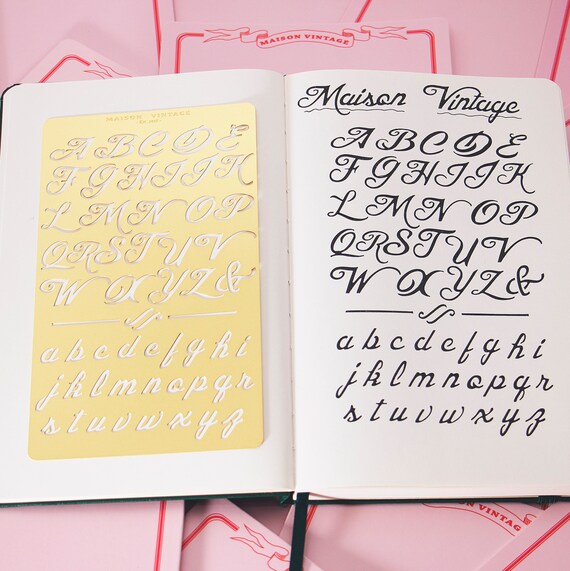 MAISON VINTAGE
MAISON VINTAGE
A B C D E
F G H I J K
L M N O P
Q R S T U V
W X Y Z &
a b c d e f g h i
j k l m n o p q r
s t u v w x y z
Maison Vintage
A B C D E
F G H I J K
L M N O P
Q R S T U V
W X Y Z &
a b c d e f g h i
j k l m n o p q r
s t u v w x y z
MAISON VINTAGE